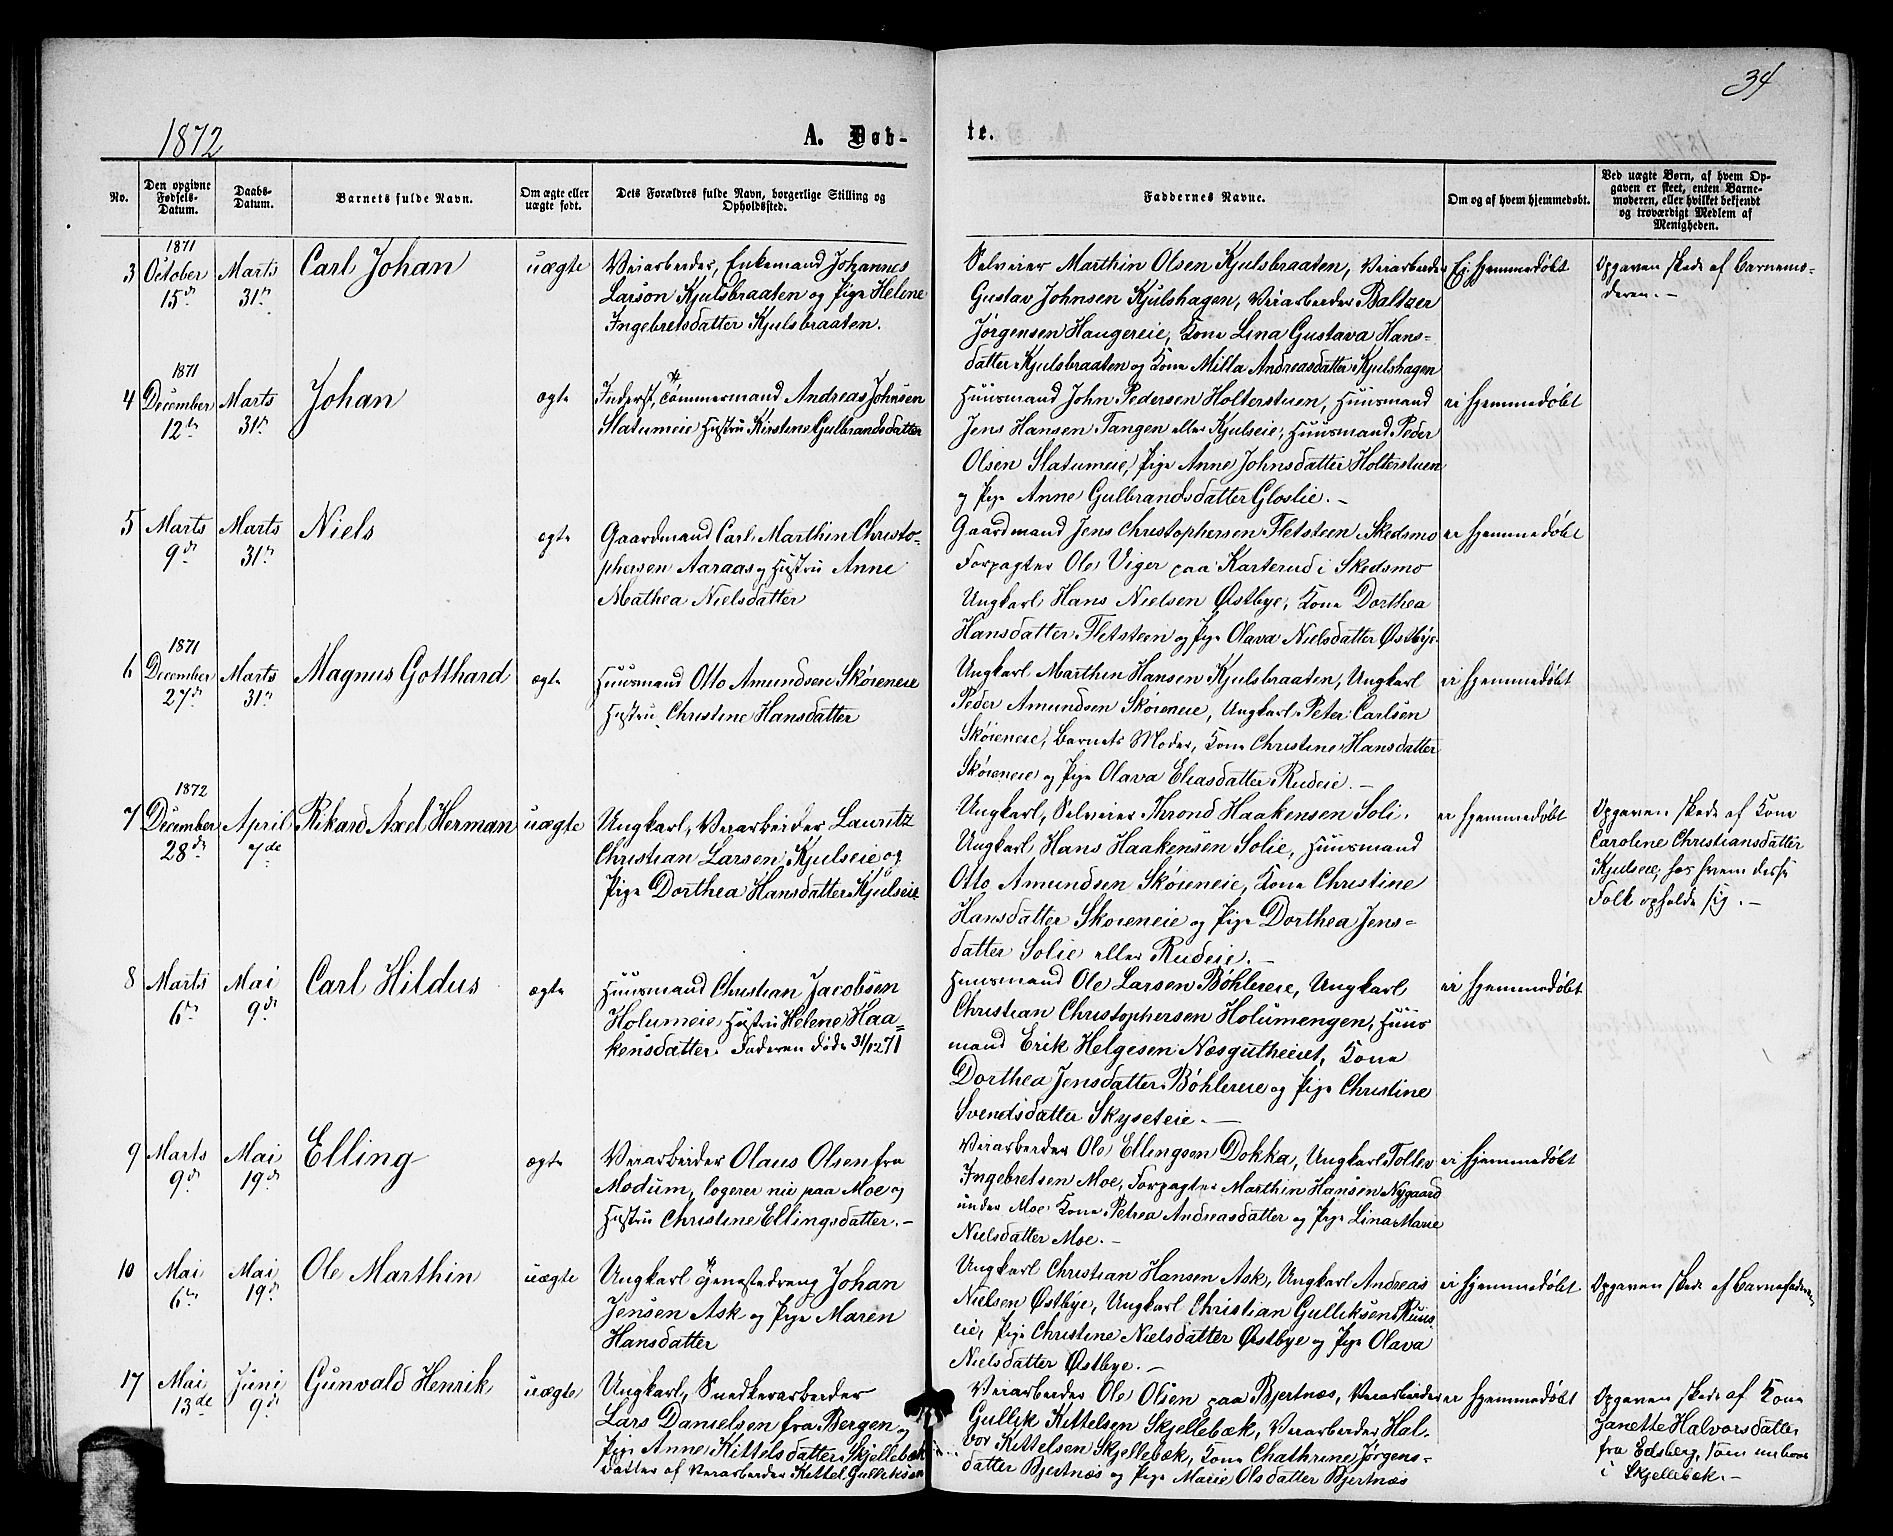 34
1872
A. Døb-
te.
No.
Den opgivne Fødsels-Datum.
Daabs-Datum.
Barnets fulde Navn.
Om ægte eller uægte født.
Dets Forældres fulde Navn, borgerlige Stilling og Opholdssted.
Faddernes Navne.
Om og af hvem hjemmedøbt.
Ved uægte Børn, af hvem Opgaven er skeet, enten Barnemoderen, eller hvilket bekjendt og troværdigt Medlem af Menigheden.
3
1871
October
15de
Marts
31te
Carl Johan
uægte
Veiarbeider, Enkemand Johannes
Larson Kjulsbraaten og Pige Helene
Ingebretsdatter Kjulsbraaten.
Selveier Marthin Olsen Kjulsbraaten, Veiarbeider
Gustav Johnsen Kjulshagen, Veiarbeider Baltzer
Jørgensen Haugereie, Kone Lina Gustava Hans-
datter Kjulsbraaten og Kone Milla Andreasdatter Kjulshagen
Ei hjemmedøbt
Opgaven skede af Barnemo-
deren.-
4
1871
December
12te
Marts
31te
Johan
ægte
Inderst, Tømmermand Andreas Johnsen
Slatumeie Hustru Kirstine Gulbrandsdatter
Huusmand John Pedersen Holterstuen, Huusmand
Jens Hansen Tangen eller Kjulseie, Huusmand Peder
Olsen Slatumeie, Pige Anne Johnsdatter Holterstuen
og Pige Anne Gulbrandsdatter Gloslie.-
ei hjemmedøbt
5
Marts
9de
Marts
31te
Niels
ægte
Gaardmand Carl Marthin Christo-
phersen Aaraas og Hustru Anne
Mathea Nielsdatter
Gaardmand Jens Christophersen Fletsteen i Skedsmo
Forpagter Ole Viger paa Karterud i Skedsmo
Ungkarl Hans Nielsen Østbye, Kone Dorthea
Hansdatter Fletsteen og Pige Olava Nielsdatter Østbye
ei hjemmedøbt
6
1871
December
27de
Marts
31te
Magnus Gotthard
ægte
Huusmand Otto Amundsen Skøieneie
Hustru Christine Hansdatter
Ungkarl Marthin Hansen Kjulsbraaten, Ungkarl
Peder Amundsen Skøieneie, Ungkarl Peter Carlsen
Skøieneie, Barnets Moder, Kone Christine Hansdatter
Skøieneie og Pige Olava Eliasdatter Rudeie.-
ei hjemmedøbt
7
1872
December
28de
April
7de
Rikard Axel Herman
uægte
Ungkarl, Veiarbeider Lauritz
Christian Larsen Kjulseie og
Pige Dorthea Hansdatter Kjulseie
Ungkarl, Selveier Thrond Haakensen Soli.
Ungkarl Hans Haakensen Solie, Huusmand
Otto Amundsen Skøieneie, Kone Christine
Hansdatter Skøieneie og Pige Dorthea Jens-
datter Solie eller Rudeie.-
ei hjemmedøbt
Opgaven skede af Kone
Caroline Christiansdatter
Kjulseie, hos hvem disse
Folk opholde sig.-
8
Marts
6te
Mai
9de
Carl Hildus
ægte
Huusmand Christian Jacobsen
Holumeie Hustru Helene Haa-
kensdatter. Faderen døde 31/12 71
Huusmand Ole Larsen Bøhlereie, Ungkarl
Christian Christophersen Holumengen, Huus
mand Erik Helgesen Næsgutheiet, Kone
Dorthea Jensdatter Bøhlereie og Pige Christine
Svendsdatter Skyseteie.-
ei hjemmedøbt
9
Marts
9de
Mai
19de
Elling
ægte
Veiarbeider Olaus Olsen fra
Modum, logerer nu paa Moe og
Hustru Christine Ellingsdatter.-
Veiarbeider Ole Ellingsen Dokka, Ungkarl Tollev
Ingebretsen Moe, Forpagter Marthin Hansen Nygaard
under Moe. Kone Petrea Andreasdatter og Pige Lina Marie
Nielsdatter Moe.-
ei hjemmedøbt
10
Mai
6te
Mai
19de
Ole Marthin
uægte
Ungkarl Tjenestedreng Johan
Jensen Ask og Pige Maren
Hansdatter
Ungkarl Christian Hansen Ask, Ungkarl Andreas
Nielsen Østbye, Ungkarl Christian Gulliksen Ruus-
eie, Pige Christine Nielsdatter Østbye og Pige Olava
Nielsdatter Østbye.-
ei hjemmedøbt
Opgaven skede af Barnefaderen
17
Mai
13de
Juni
9de
Gunvald Henrik
uægte
Ungkarl, Snedkerarbeider
Lars Danielsen fra Bergen og
Pige Anne Kittelsdatter Skjellebæk
datter af Veiarbeider Kittel Gulliksen
Veiarbeider Ole Olsen paa Bjertnæs, Veiarbeider
Gullik Kittelsen Skjellebæk, Veiarbeider Hal-
vor Kittelsen Skjellebæk, Kone Chathrine Jørgens-
datter Bjertnæs og Pige Marie Olsdatter Bjertnæs
ei hjemmedøbt
Opgaven skede af Kone
Janette Halvorsdatter
fra Edsberg, som nu boer
i Skjellebæk.-